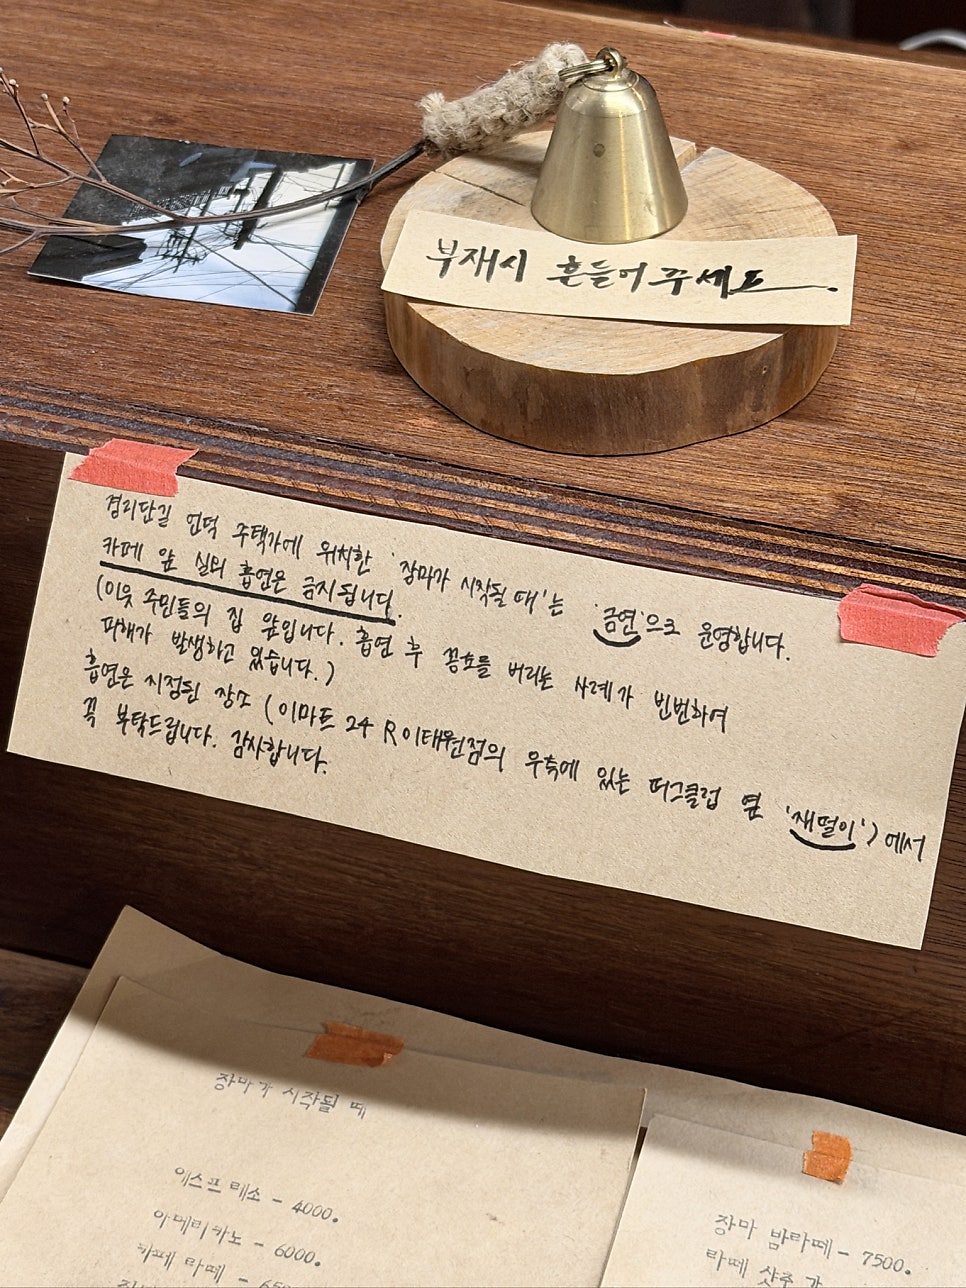 부재시 흔들어주세요.
경리단길 언덕 주택가에 위치한 '장마가 시작될 때'는 '금연'으로 운영합니다.
카페 앞 실외 흡연은 금지됩니다.
(이웃 주민들의 집 앞입니다. 흡연 후 꽁초를 버리는 사례가 빈번하여
피해가 발생하고 있습니다.)
흡연은 지정된 장소 (이마트24 R이태원점의 우측에 있는 퍼그클럽 옆 '재떨이')에서
꼭 부탁드립니다. 감사합니다.
장마가 시작될 때
에스프레소 - 4000.
아메리카노 - 6000.
카페 라떼 -
장마 밤라떼 - 7500.
라떼 샷추가